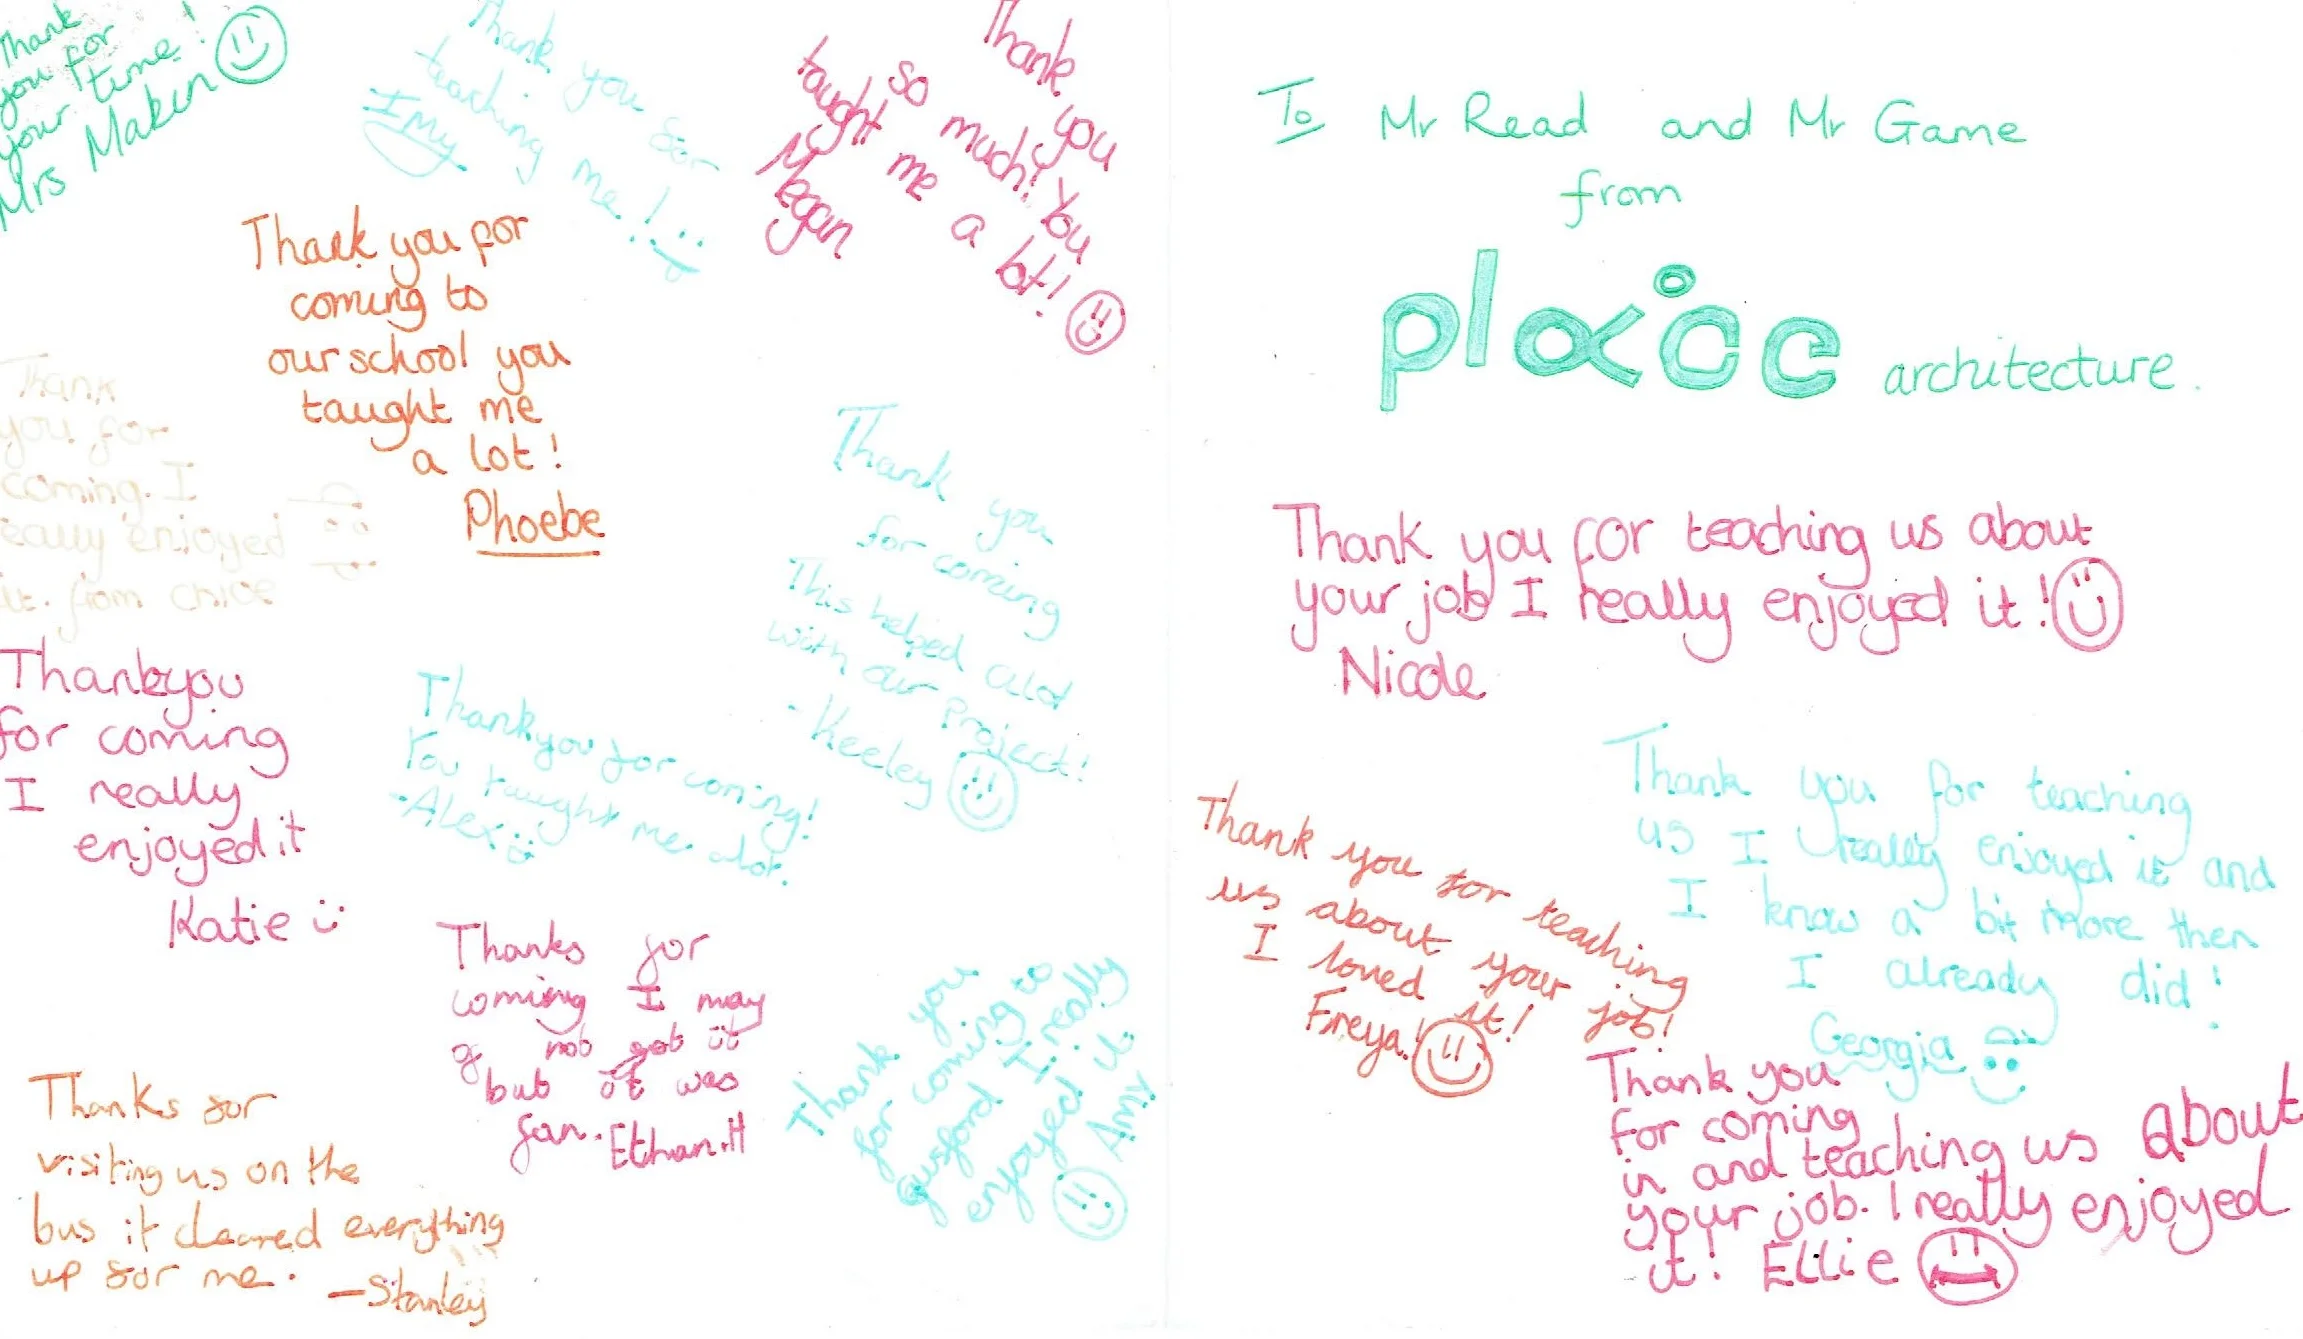 Thank
you for
your time!
Mrs Makin
Thank you for
teaching me!
Imy
Thank you
so much! You
taught me a lot!
Megan
Thank you for
coming to
our school you
taught me
a lot!
Phoebe
Thank
you for
coming. I
really enjoyed
it. from Chloe
Thank you
for coming
This helped alot
with our Project!
- Keeley
Thankyou
for coming
I really
enjoyed it
Katie
Thankyou for coming!
You taught me alot.
- Alex
Thanks for
coming I may
not got it
but it was
fun. Ethan.H
Thank you
for coming to
I really
enjoyed it
Amy
Thanks for
visiting us on the
bus it cleared everything
up for me.
- Stanley
To Mr Read and Mr Game
from
place architecture.
Thank you for teaching us about
your job I really enjoyed it!
Nicole
Thank you for teaching
us about your job!
I loved it!
Freya!
Thank you for teaching
us I really enjoyed it and
I know a bit more then
I already did!
Georgia
Thank you
for coming
in and teaching us about
your job. I really enjoyed
it! Ellie